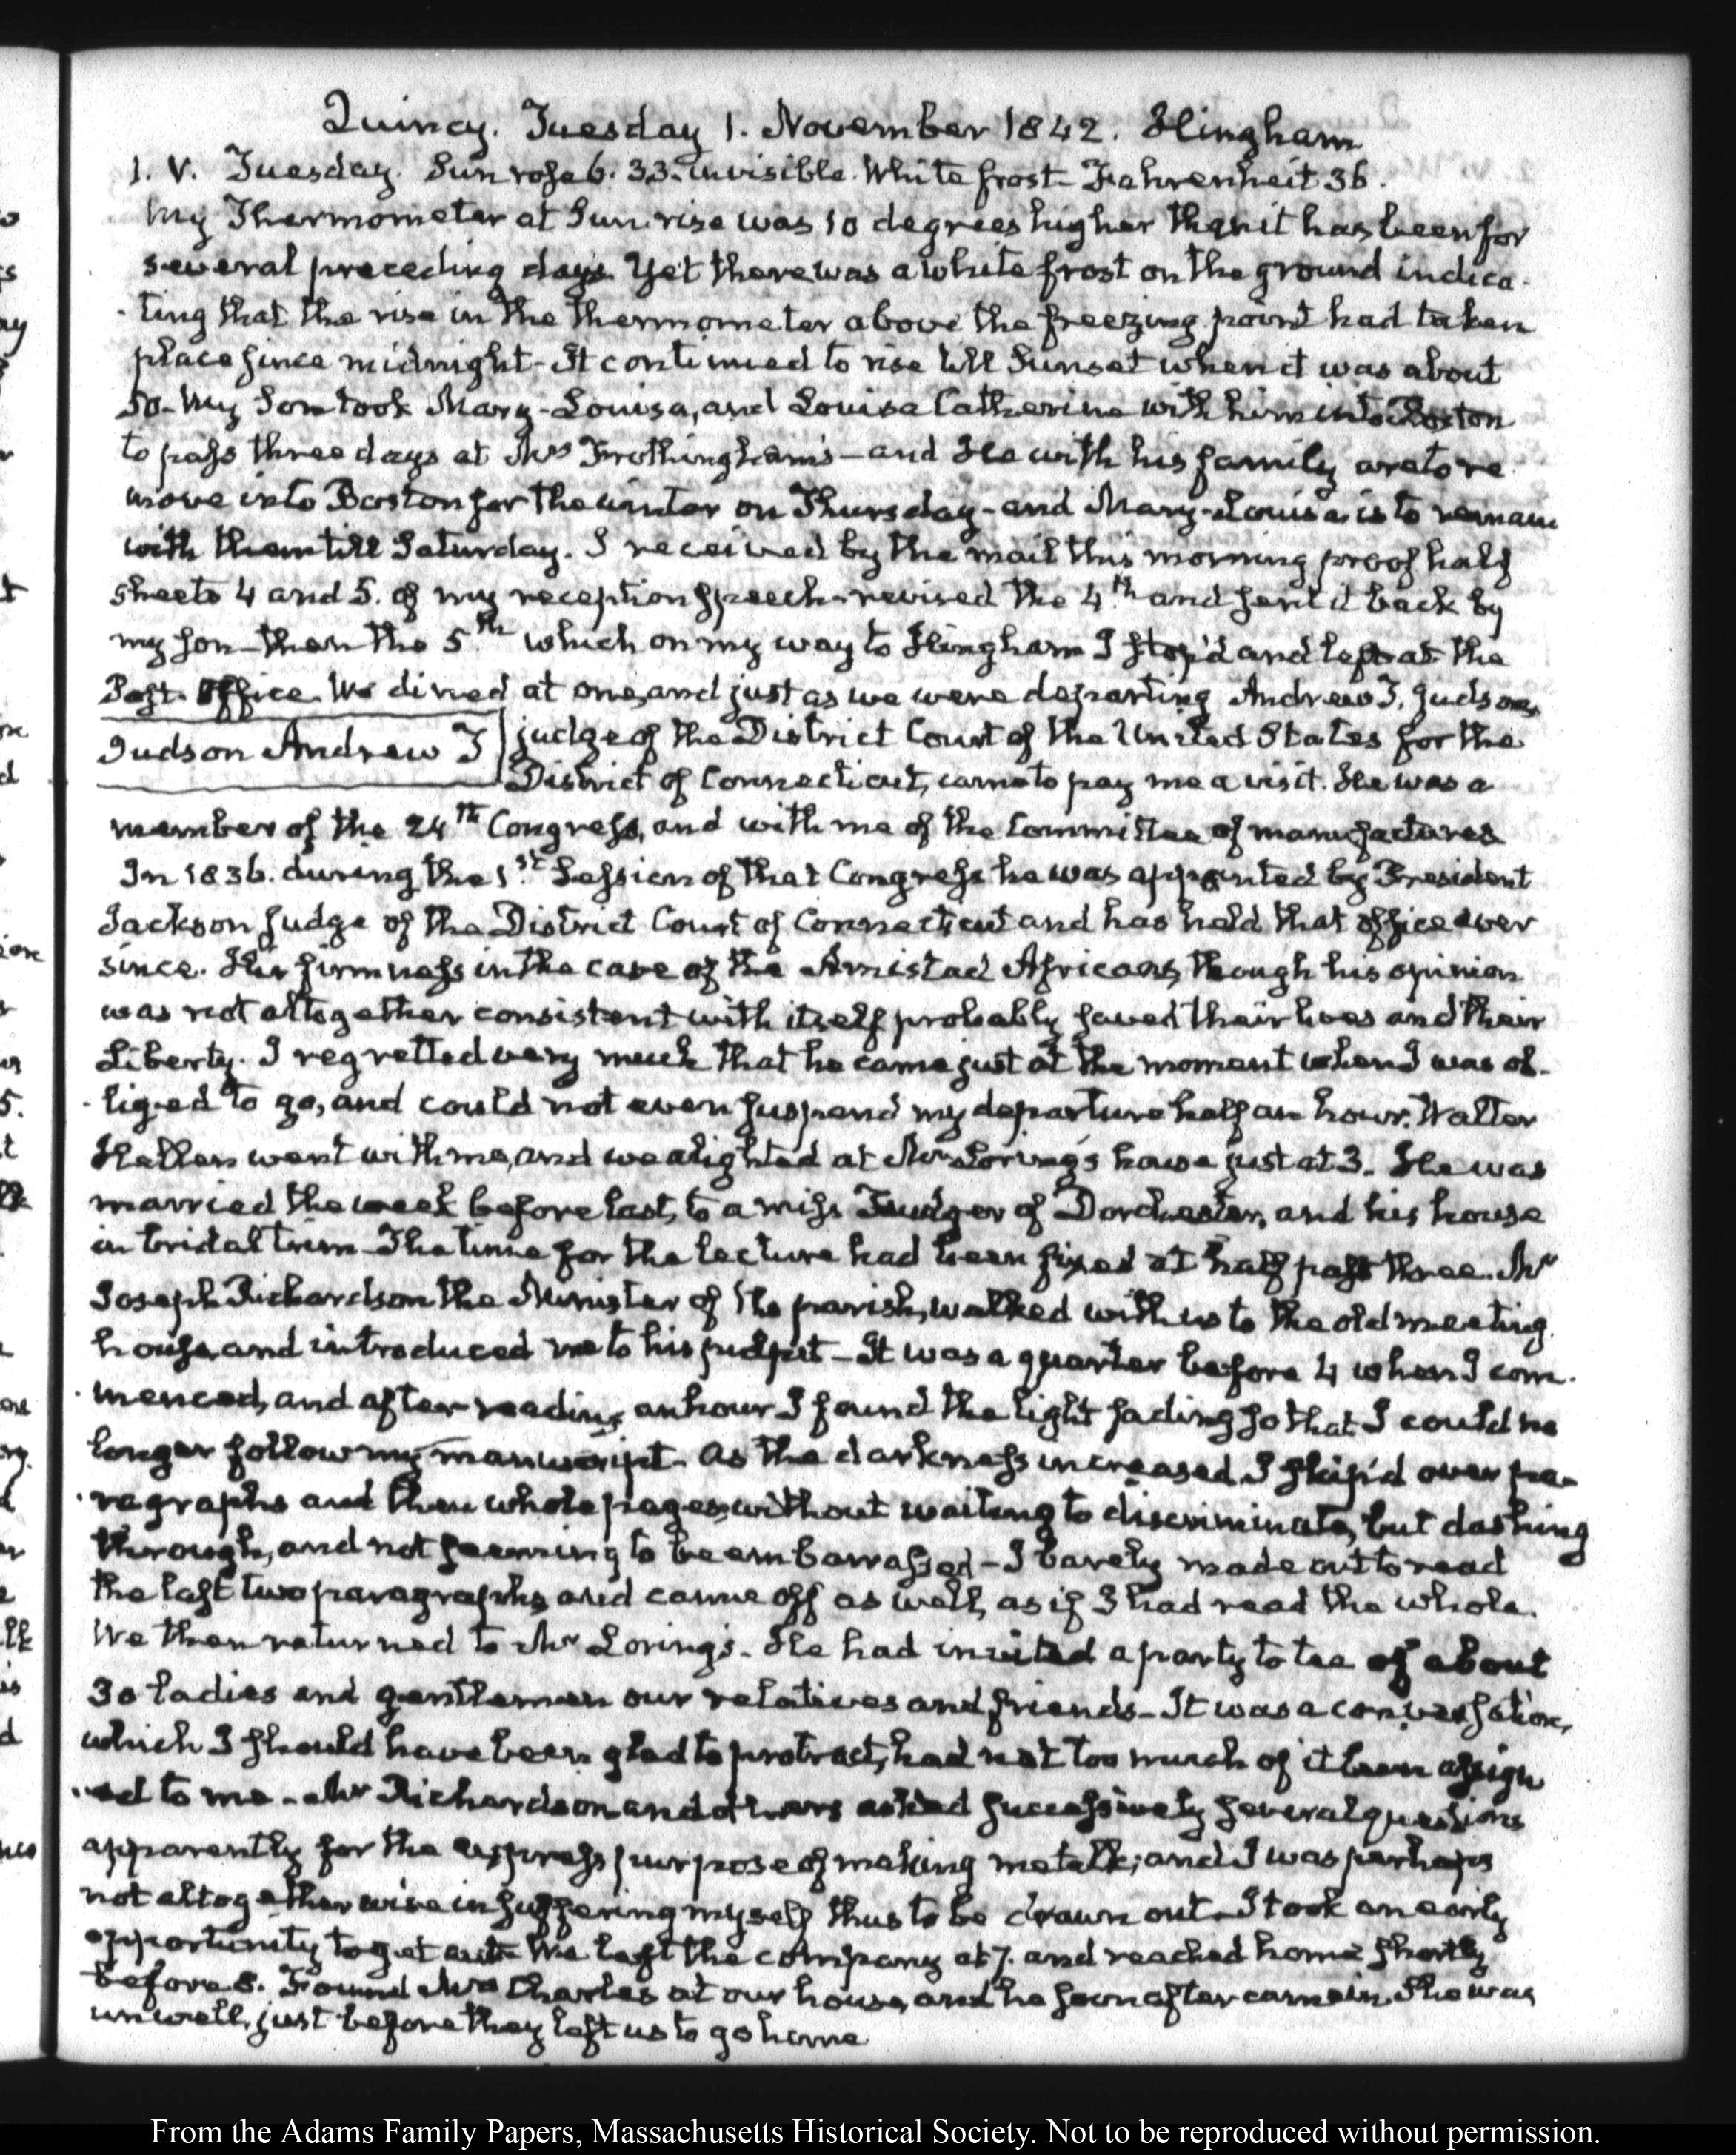 Quincy. Tuesday 1. November 1842. Hingham
1. V. Tuesday. Sun rose 6. 33. invisible. White frost - Fahrenheit 36.
My Thermometer at Sun-rise was 10 degrees higher than it has been for
several preceding days. Yet there was a white frost on the ground indica-
-ting that the rise in the thermometer above the freezing point had taken
place since midnight - It continued to rise till Sunset when it was about
50 - My Son took Mary-Louisa, and Louisa Catherine with him into Boston
to pass three days at Mrs Frothingham's - and He with his family are to re
move into Boston for the winter on Thursday - and Mary-Louisa is to remain
with them till Saturday. I received by the mail this morning proof half
sheets 4 and 5. of my reception speech - revised the 4.th and sent it back by
my son - then the 5.th which on my way to Hingham I stop'd and left at the
Post-Office. We dined at one, and just as we were departing Andrew T. Judson,
Judson Andrew T
judge of the District Court of the United States for the
District of Connecticut, came to pay me a visit. He was a
member of the 24th Congress, and with me of the Committee of manufactures
In 1836. during the 1.st Session of that Congress he was appointed by President
Jackson judge of the District Court of Connecticut and has held that office ever
since. His firmness in the case of the Amistad Africans, though his opinion
was not altogether consistent with itself probably saved their lives and their
Liberty. I regretted very much that he came just at the moment when I was ob-
-liged to go, and could not even suspend my departure half an hour. Walter
Hellen went with me, and we alighted at Mr Loring's house just at 3. He was
married the week before last, to a miss of Dorchester, and his house
in bridal trim - The time for the lecture had been fixed at half past three. Mr
Joseph Richardson the Minister of the parish, walked with us to the old meeting
house, and introduced me to his pulpit - It was a quarter before 4 when I com-
-menced, and after reading an hour I found the light fading so that I could no
longer follow my manuscript. As the darkness increased I skip'd over pa-
-ragraphs and then whole pages, without waiting to discriminate, but dashing
through, and not seeming to be embarrassed - I barely made out to read
the last two paragraphs, and came off as well, as if I had read the whole.
We then returned to Mr Loring's. He had invited a party to tea of about
30 ladies and gentlemen our relatives and friends - It was a conversation,
which I should have been glad to protract, had not too much of it been assign
-ed to me - Mr Richardson and others asked successively several questions
apparently for the express purpose of making me talk; and I was perhaps
not altogether wise in suffering myself thus to be drawn out - I took an early
opportunity to get out - We left the company at 7. and reached home shortly
before 8. Found Mrs Charles at our house, and he soon after came in. She was
unwell, just before they left us to go home
From the Adams Family Papers, Massachusetts Historical Society. Not to be reproduced without permission.